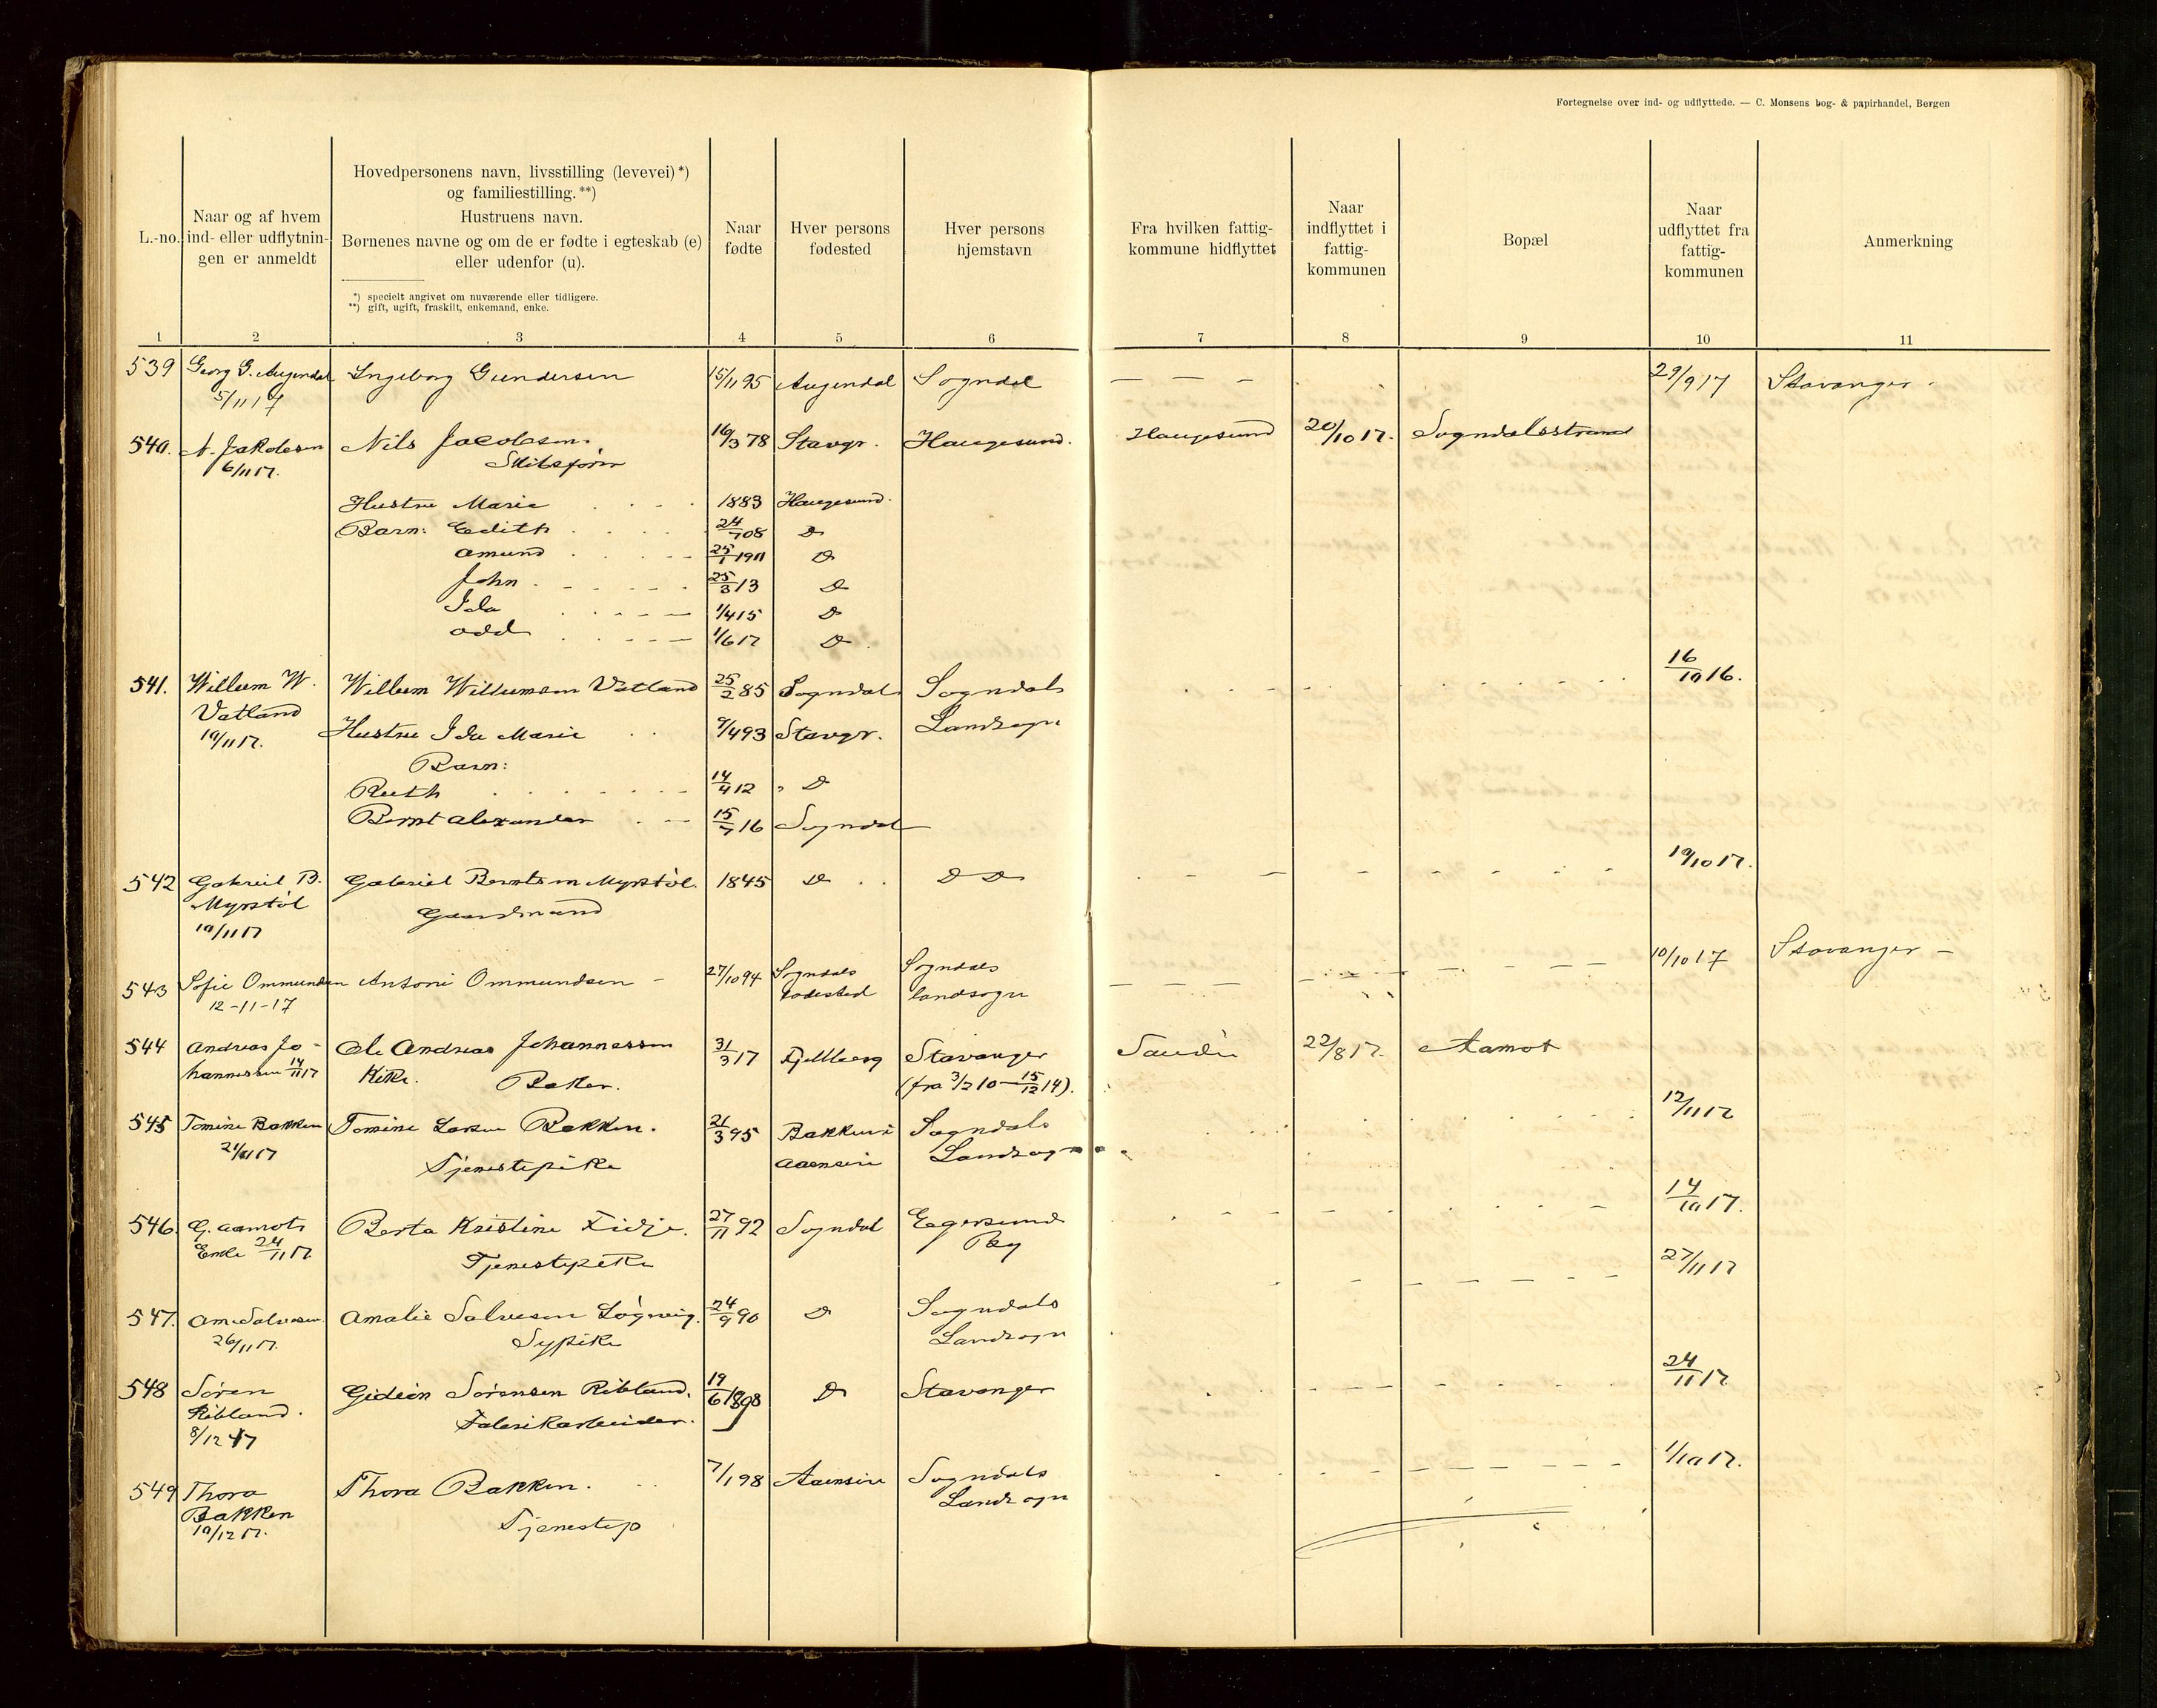 Fortegnelse over ind- og udflyttede. — C. Monsens bog- & papirhandel, Bergen
L.-no.
Naar og af hvem
ind- eller udflytnin-
gen er anmeldt
Hovedpersonens navn, livsstilling (levevei)*)
og familiestilling.**)
Hustruens navn.
Børnenes navne og om de er fødte i egteskab (e)
eller udenfor (u).
*) specielt angivet om nuværende eller tidligere.
**) gift, ugift, fraskilt, enkemand, enke.
Naar
fødte
Hver persons
fødested
Hver persons
hjemstavn
Fra hvilken fattig-
kommune hidflyttet
Naar
indflyttet i
fattig-
kommunen
Bopæl
Naar
udflyttet fra
fattig-
kommunen
Anmerkning
1 2 3 4 5 6 7 8 9 10 11
539 Georg G. Augendal Ingeborg Gundersen 15/11 95 Augendal Sogndal — — — 29/9 17 Stavanger
5/11 17
540. N. Jakobsen Nils Jacobsen. 16/3 78 Stavgr. Haugesund. Haugesund 20/10 17. Sogndalsstrand
6/11 17. Skibsfører
Hustru Marie 1883 Haugesund.
Barn: Edith 24/7 08 D
Amund 25/1 1911 D
John 25/3 13 D
Ida 1/4 15 D
Odd 1/6 17 D
541. Willum W. Willum Willumsen Vatland 25/2 85 Sogndal Sogndals 16/10 16.
Vatland Hustru Ida Marie 9/4 93 Stavgr. Landsogn
10/11 17. Barn:
Ruth 14/4 12 D
Bernt Alexander 15/7 16 Sogndal
542 Gabriel B. Gabriel Berntsen Myrstøl. 1845 D D D 10/10 17.
Myrstøl Gaardmand
10/11 17
543 Sofie Ommundsen Antoni Ommundsen 27/10 94 Sogndals Sogndals 10/10 17 Stavanger —
12-11-17 ladested landsogn
544 Andreas Jo- Ole Andreas Johannessen 31/3 17 Fjellberg Stavanger Saude 22/8 17. Aamot
hannessen 14/11 17 Baker. (fra 3/2 10 — 15/12 14).
545 Tomine Bakken Tomine Larsen Bakken. 21/3 95 Bakken i Sogndals 12/11 17
21/11 17 Tjenestepike Aaensire Landsogn
546. G. Aamots Berta Kristine Fidje. 27/11 92 Sogndal Egersund 14/10 17.
Enke 24/11 17. Tjenestepike By
547. Am. Salvesen Amalie Salvesen Løgnvig. 24/9 90 D Sogndals 27/11 17
26/11 17. Sypike Landsogn
548 Søren Gidion Sørensen Ribland. 19/6 1898 D Stavanger 24/11 17
Ribland. Fabrikarbeider.
8/12 17
549 Thora Thora Bakken. 7/1 98 Aaensire Sogndals 1/10 17.
Bakken Tjenestep Landsogn
10/12 17.